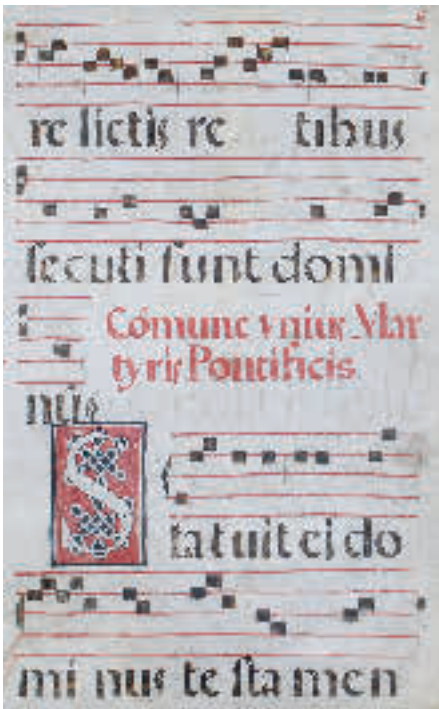 re lictis re tibus
secuti sunt domi
Cómune vnius Mar
tyris Pontificis
nũs
Statuit ei do
mi nus te sta men